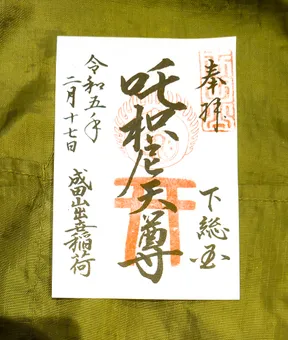 奉拝
下総国
吒枳尼天尊
令和五年
二月十七日
成田山出世稲荷